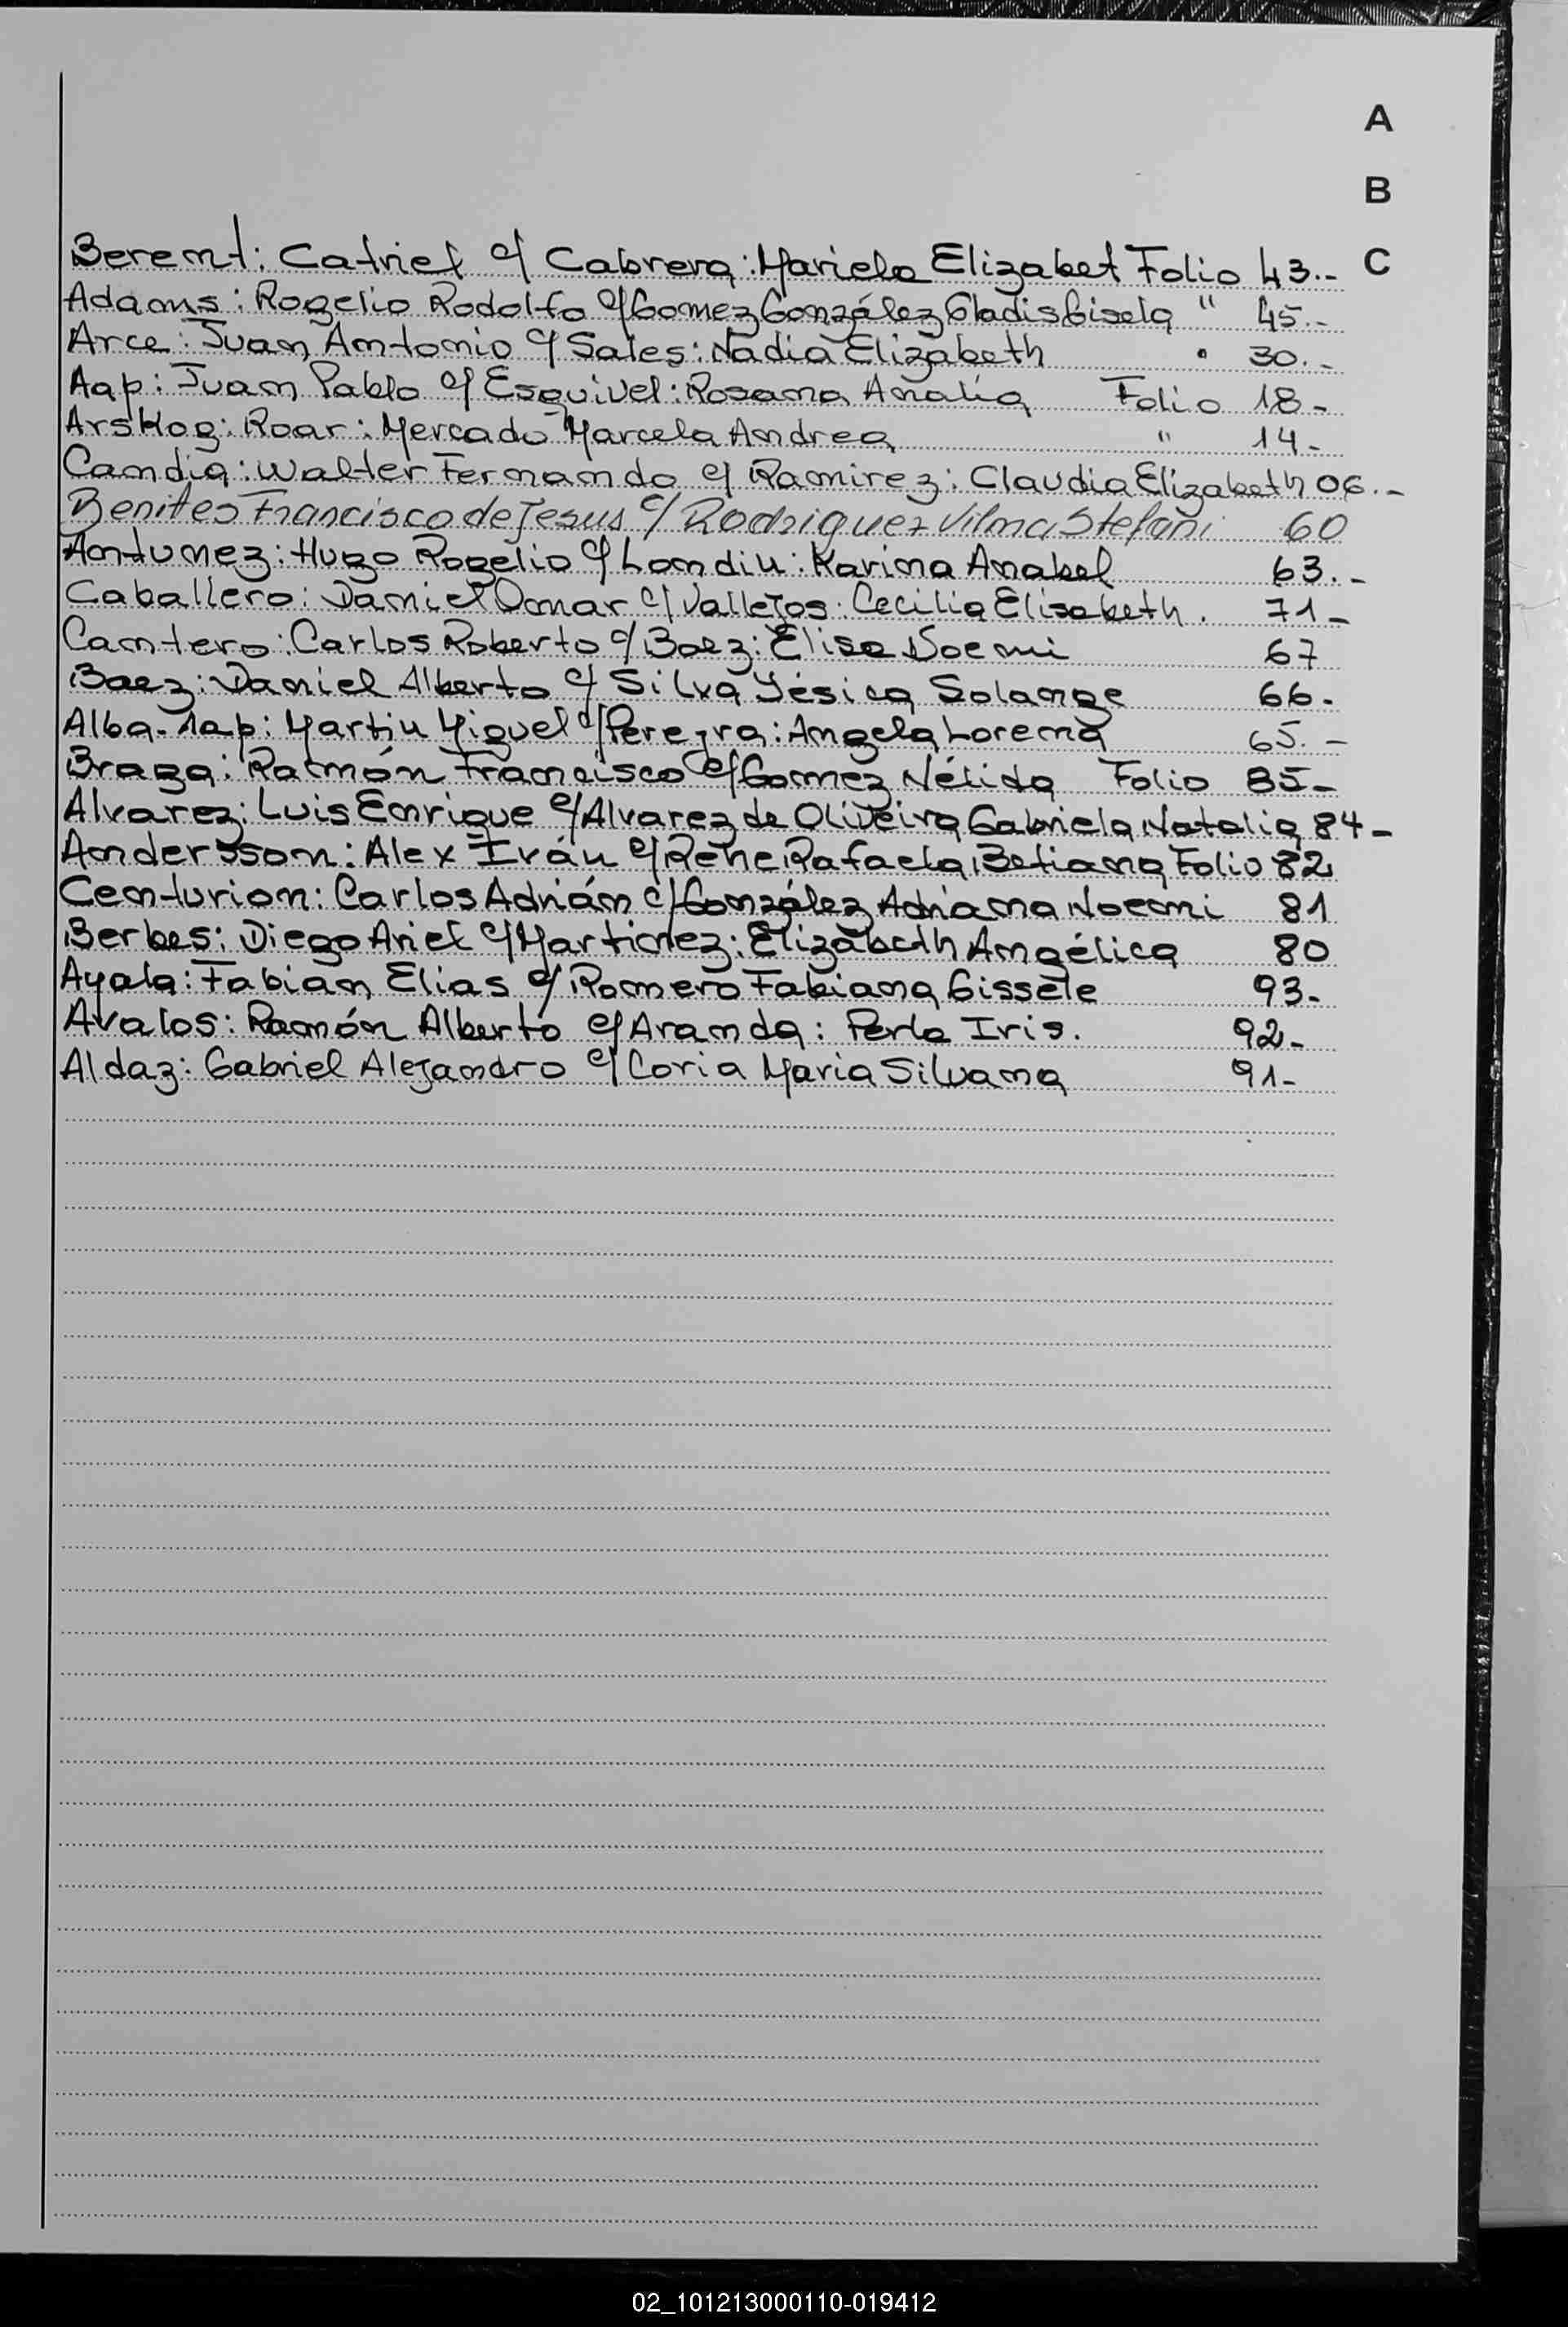 A
B
C
Berent: Catriel c/ Cabrera: Mariela Elizabet Folio 43.-
Adams: Rogelio Rodolfo c/ Gomez González Gladis Gisela " 45.-
Arce: Juan Antonio c/ Sales: Nadia Elizabeth " 30.-
Aap: Juan Pablo c/ Esquivel: Rosana Analía Folio 18-
Arskog: Roar: Mercado Marcela Andrea " 14-
Candia: Walter Fernando c/ Ramirez: Claudia Elizabeth 06.-
Benites Francisco de Jesus c/ Rodriguez Vilma Stefani 60
Antunez: Hugo Rogelio c/ Londiu: Karina Anabel 63.-
Caballero: Daniel Omar c/ Vallejos: Cecilia Elisabeth. 71-
Cantero: Carlos Roberto c/ Baez: Elisa Noemi 67
Baez: Daniel Alberto c/ Silva Yésica Solange 66.
Alba-Aap: Martin Miguel c/ Pereyra: Angela Lorena 65.-
Braga: Ramón Francisco c/ Gomez Nélida Folio 85-
Alvarez: Luis Enrique c/ Alvarez de Oliveira Gabriela Natalia 84-
Anderssom: Alex Iván c/ Rene Rafaela Betiana Folio 82
Centurion: Carlos Adrián c/ González Adriana Noemi 81
Berbes: Diego Ariel c/ Martinez: Elizabeth Angélica 80
Ayala: Fabian Elias c/ Romero Fabiana Gissele 93-
Avalos: Ramón Alberto c/ Aranda: Perla Iris. 92-
Aldaz: Gabriel Alejandro c/ Coria Maria Silvana 91-
02_101213000110-019412